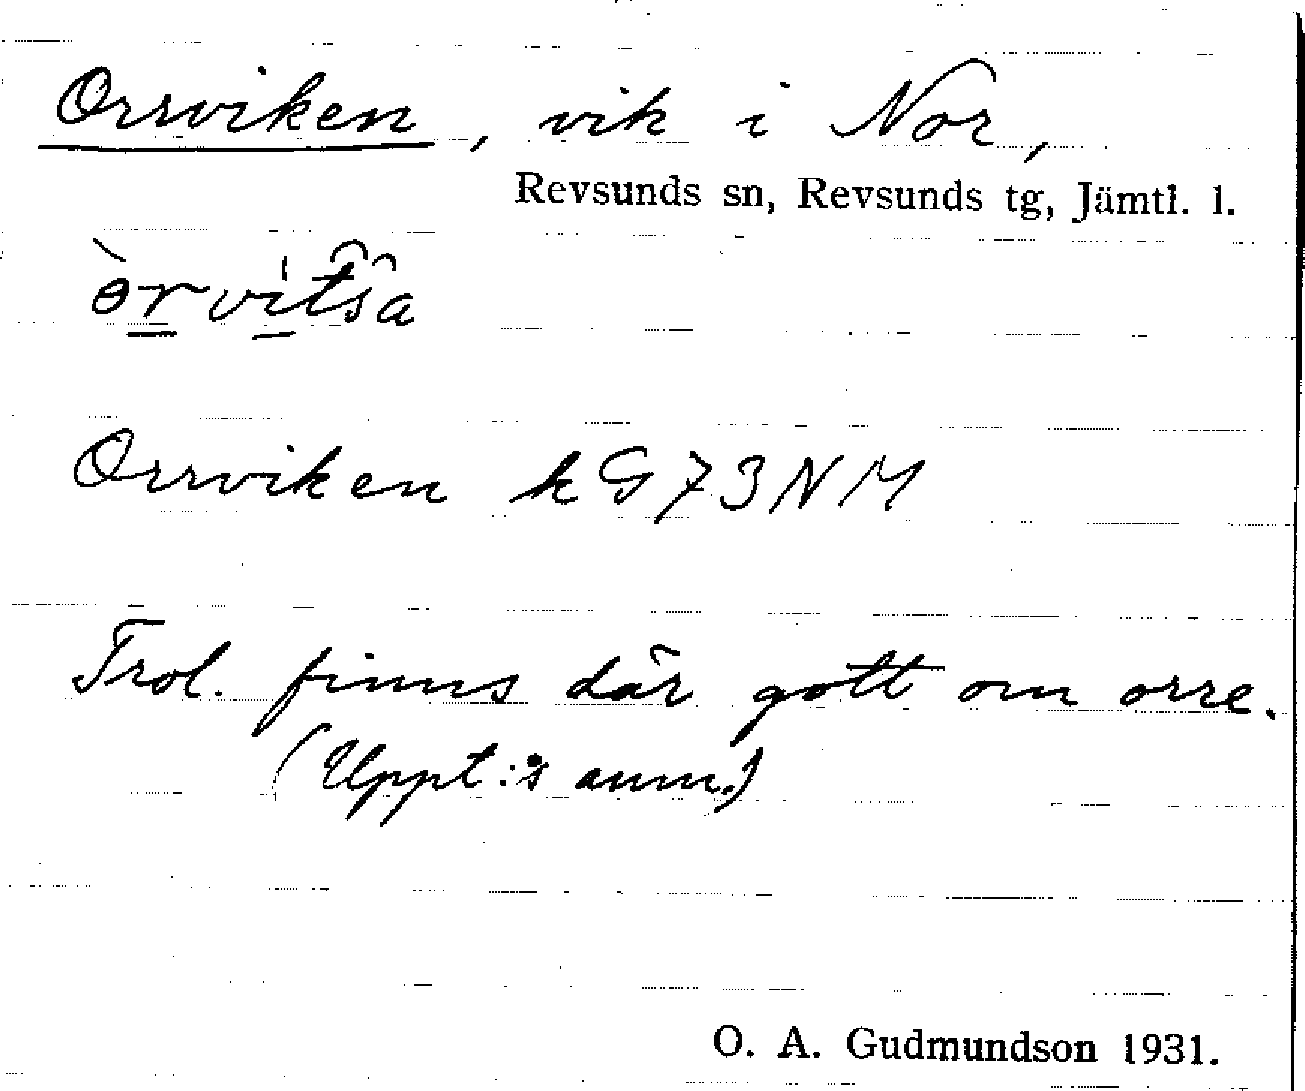 Orrviken, vik i Nor,
Revsunds sn, Revsunds tg, Jämtl. l.
Orrviken kG73NM
Trol. finns där gott om orre.
(Uppt:s anm.)
O. A. Gudmundson 1931.